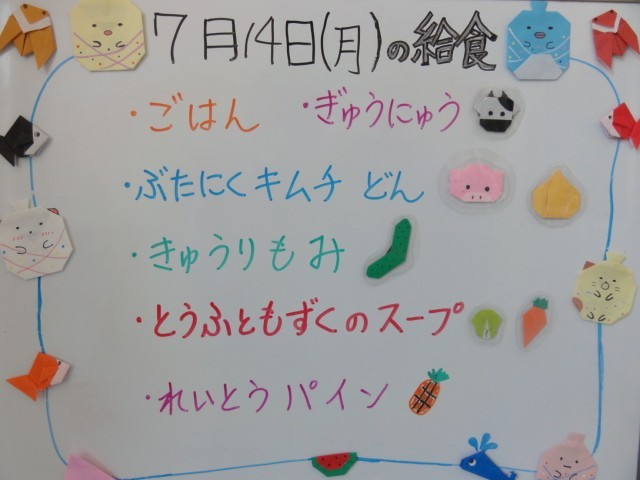 7月14日(月)の給食
・ごはん ・ぎゅうにゅう
・ぶたにくキムチ どん
・きゅうりもみ
・とうふともずくのスープ
・れいとう パイン